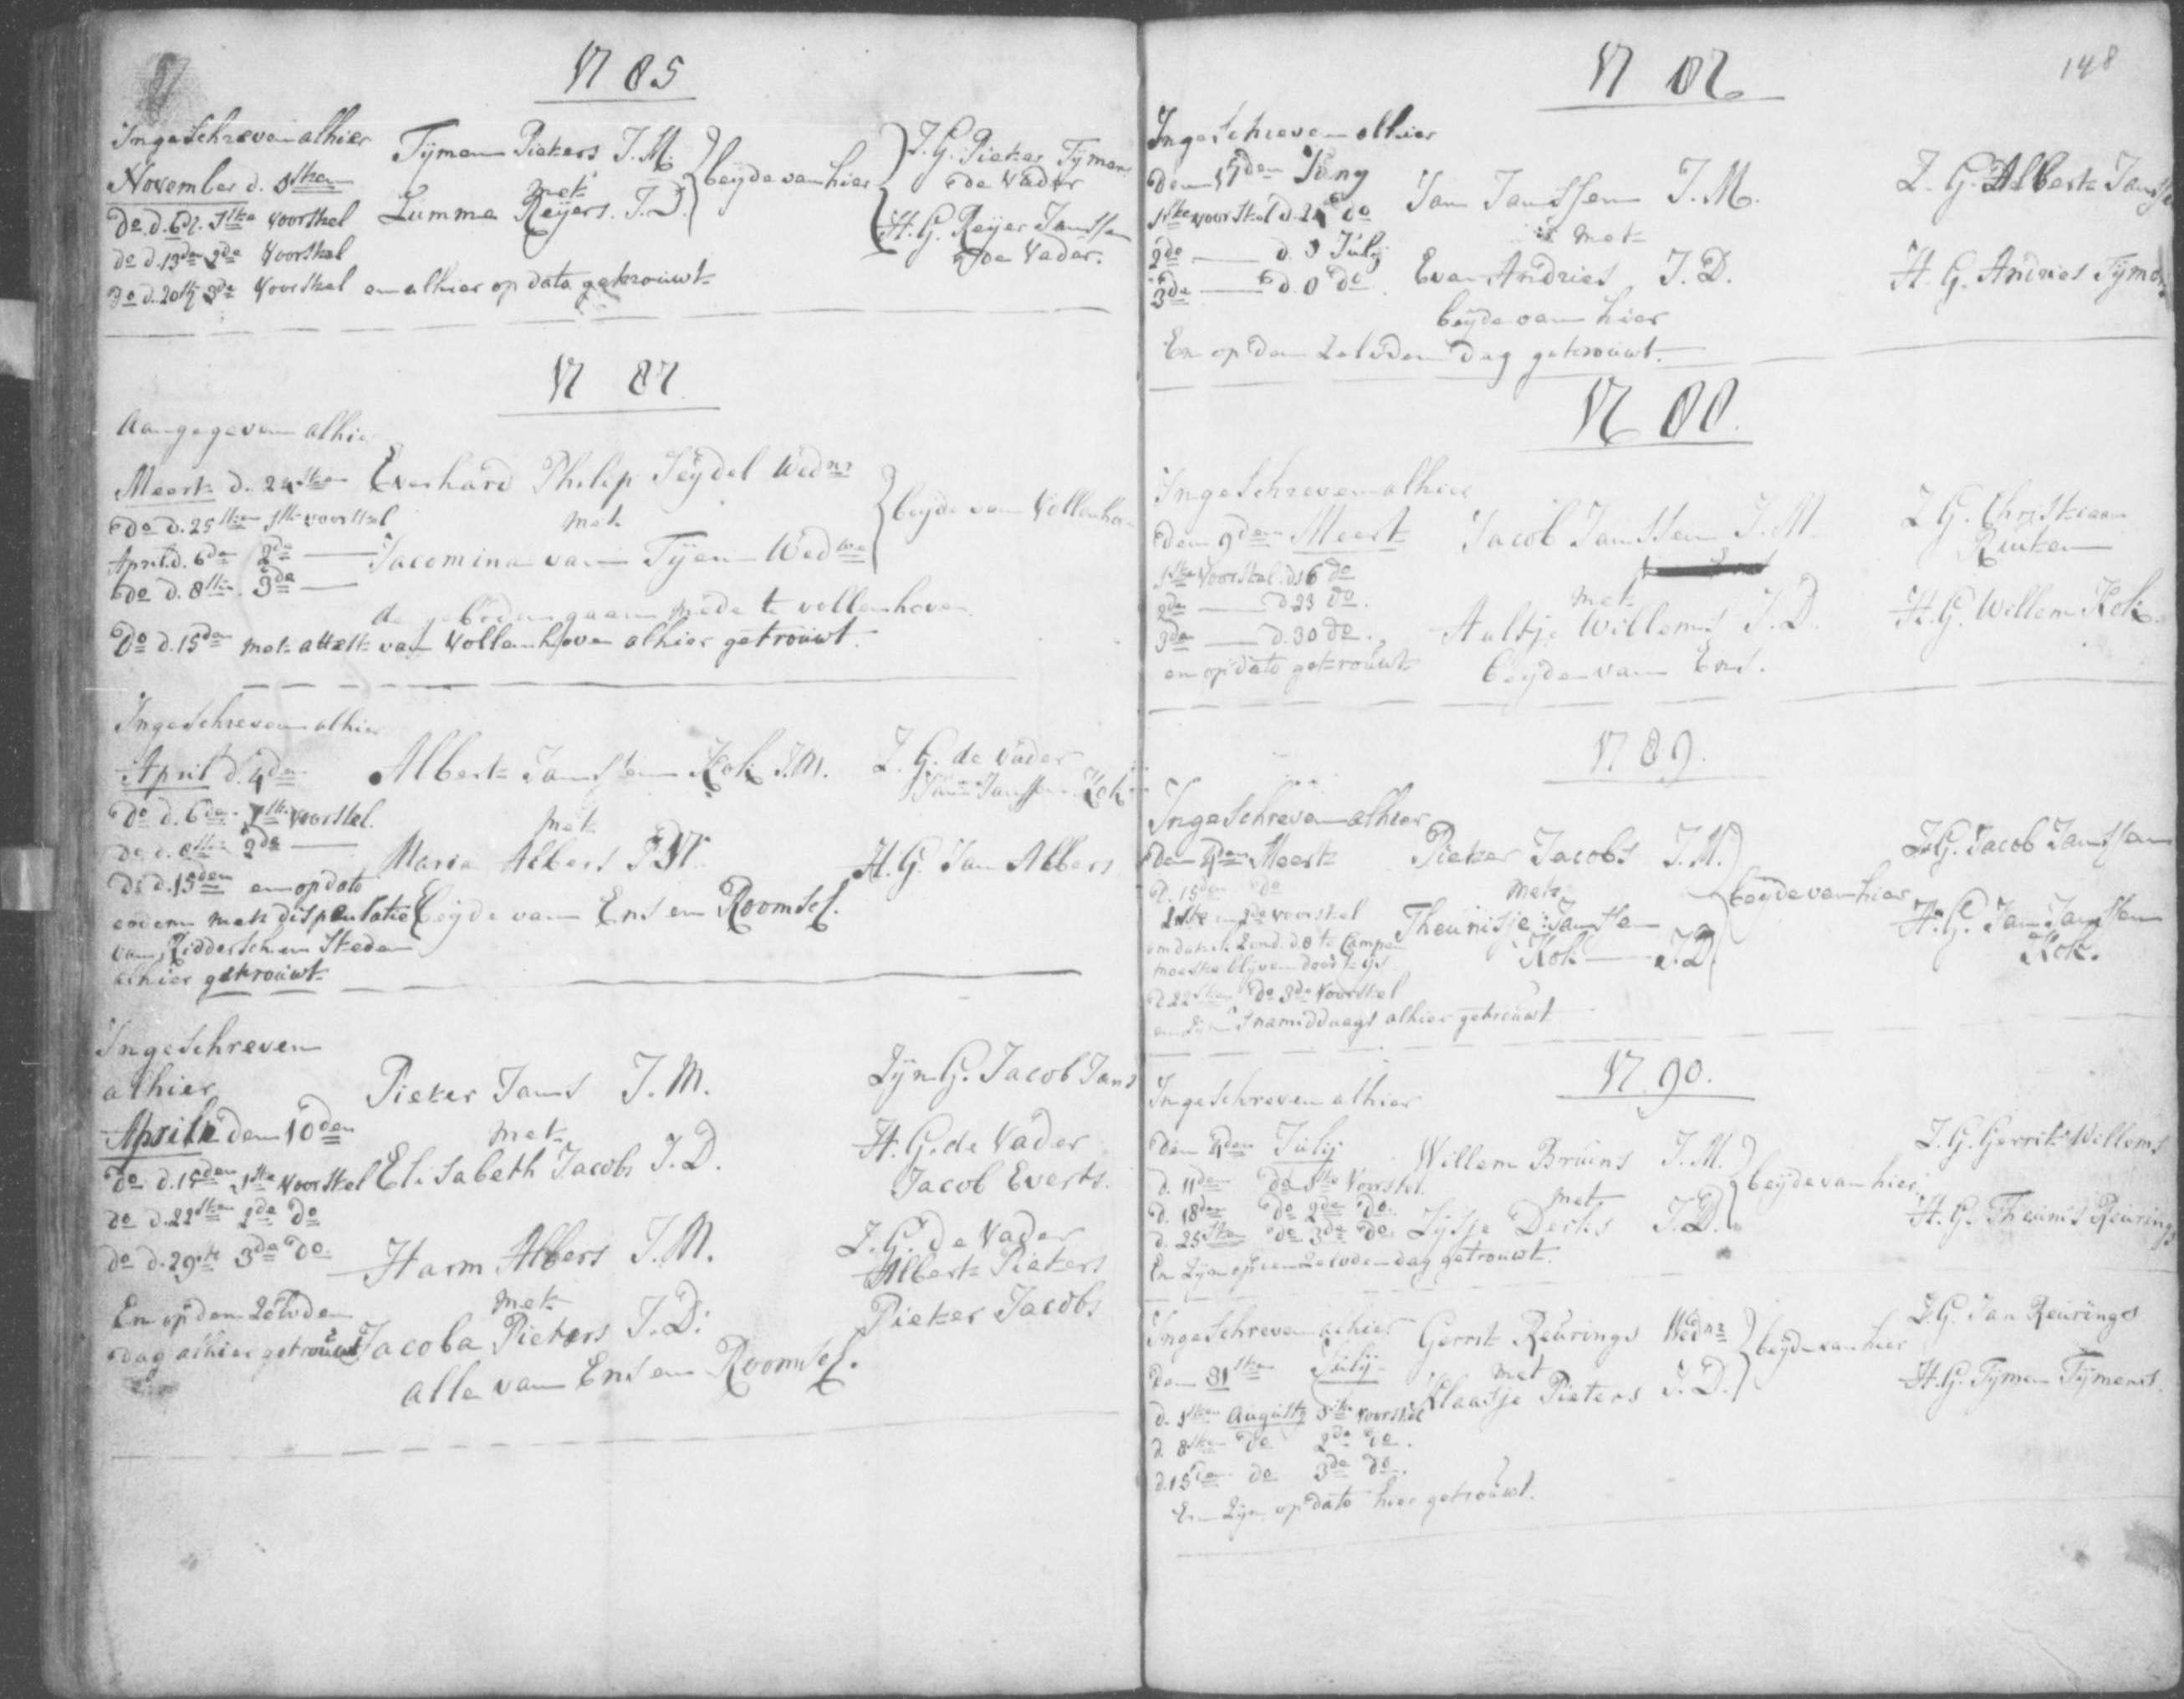 1785
Ingeschreven alhier
November d. 1sten
Do. d. 6de. 1ste voorstel
do d. 13den 2de Voorstel
do d. 20ste 3de Voorstel en alhier op dato getrouwt
Tijmen Pieters J.M.
met
Lumme Reijers. J.D.
beijde van hier
Z.G. Pieter Tijmens
de Vader
H.G. Reijer Janssen
de Vader.
1787
Aangegeven alhier
Meert d. 24sten
do d. 25sten 1ste voorstel
April d. 6de 2de
do d. 8sten 3de
Everhard Philip Seijdel Wednr
met
Jacomina van Tijen Wedwe
beijde van Vollenhoven
de geboden gaan mede te vollenhoven
Do d. 15den met attest van Vollenhoven alhier getrouwt.
Ingeschreven alhier
April d. 4den
do d. 6de 1ste voorstel.
do d. 8ste 2de
do d. 15den en op dato
eodem met dispensatie
van Ridderschen Steden
alhier getrouwt
Albert Janssen Kok J.M.
met
Maria Albers J.D.
Beijde van Ens en Roomsch.
Z.G. de Vader
Jan Janssen Kok
H.G. Jan Albers
Ingeschreven
alhier
April den 10den
do d. 15den 1ste Voorstel
do d. 22sten 2de do
do d. 29ste 3de do.
En op den zelvden
dag alhier getrouwt
Pieter Jans J.M.
met
Elisabeth Jacobs J.D.
Harm Albers J.M.
met
Jacoba Pieters J.D.
alle van Ens en Roomsch.
Zijn G. Jacob Jans
H.G. de Vader
Jacob Everts.
Z.G. de Vader
Albert Pieters
Pieter Jacobs
148
1787
Ingeschreven alhier
den 17den Juny
1ste voorstel d. 24 do
2de d. 1 July
3de d. 8 do
Jan Janssen J.M.
met
Eva Andries J.D.
beijde van hier
En op den zelvden dag getrouwt.
Z.G. Albert Janssen
H.G. Andries Tijmens
1788.
Ingeschreven alhier
den 9den Meert
1ste Voorstel. d. 16 do
2de d. 23 do.
3de d. 30 do.
en op dato getrouwt
Jacob Janssen J.M.
met
Aaltje Willems J.D.
beijde van Ens.
Z.G. Christiaan
H.G. Willem Kok
1789.
Ingeschreven alhier
den 4den Meert
d. 15den do
1ste en 2de voorstel
omdat ik Zond. d. 8 te Campen
moeste blijven door't ijs
d. 22sten do 3de Voorstel
en zijn 's namiddaags alhier getrouwt
Pieter Jacobs J.M.
met
Theunisje Janssen
Kok J.D.
beijde van hier
Z.G. Jacob Janssen
H.G. Jan Janssen
Kok.
1790.
Ingeschreven alhier
den 4den Julij
d. 11den do 1ste Voorstel.
d. 18den do 2de do.
d. 25sten do 3de do.
En zijn op den zelvden dag getrouwt.
Willem Bruins J.M.
met
Lijsje Derks J.D.
beijde van hier.
Z.G. Gerrit Willems
H.G. Theunis Reurings
Ingeschreven alhier
den 31sten Julij
d. 1sten Augusty 1ste voorstel
d. 8sten do 2de do.
d. 15den do 3de do.
En zijn op dato hier getrouwt.
Gerrit Reurings Wednr
met
Klaasje Pieters J.D.
beijde van hier
Z.G. Jan Reurings
H.G. Tijmen Tijmens.